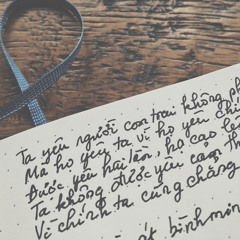 Ta yêu người con trai không ph
Mà họ yêu ta vì họ yêu chí
Được yêu hai lần, họ cao lê
Ta không được yêu cảm th
Vì chính ta cũng chẳng
bình min